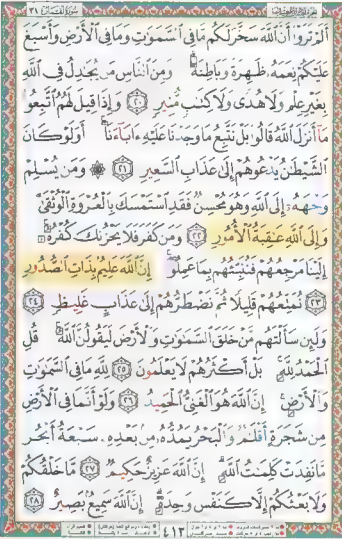 سُورَةُ لُقْمَان ٣١
أَلَمْ تَرَوْا۟ أَنَّ ٱللَّهَ سَخَّرَ لَكُم مَّا فِى ٱلسَّمَـٰوَٰتِ وَمَا فِى ٱلْأَرْضِ وَأَسْبَغَ
عَلَيْكُمْ نِعَمَهُۥ ظَـٰهِرَةً وَبَاطِنَةً ۗ وَمِنَ ٱلنَّاسِ مَن يُجَـٰدِلُ فِى ٱللَّهِ
بِغَيْرِ عِلْمٍ وَلَا هُدًى وَلَا كِتَـٰبٍ مُّنِيرٍ ٢٠ وَإِذَا قِيلَ لَهُمُ ٱتَّبِعُوا۟
مَآ أَنزَلَ ٱللَّهُ قَالُوا۟ بَلْ نَتَّبِعُ مَا وَجَدْنَا عَلَيْهِ ءَابَآءَنَآ ۚ أَوَلَوْ كَانَ
ٱلشَّيْطَـٰنُ يَدْعُوهُمْ إِلَىٰ عَذَابِ ٱلسَّعِيرِ ٢١ ۞ وَمَن يُسْلِمْ
وَجْهَهُۥٓ إِلَى ٱللَّهِ وَهُوَ مُحْسِنٌ فَقَدِ ٱسْتَمْسَكَ بِٱلْعُرْوَةِ ٱلْوُثْقَىٰ ۗ
وَإِلَى ٱللَّهِ عَـٰقِبَةُ ٱلْأُمُورِ ٢٢ وَمَن كَفَرَ فَلَا يَحْزُنكَ كُفْرُهُۥٓ ۚ
إِلَيْنَا مَرْجِعُهُمْ فَنُنَبِّئُهُم بِمَا عَمِلُوٓا۟ ۚ إِنَّ ٱللَّهَ عَلِيمٌۢ بِذَاتِ ٱلصُّدُورِ
٢٣ نُمَتِّعُهُمْ قَلِيلًا ثُمَّ نَضْطَرُّهُمْ إِلَىٰ عَذَابٍ غَلِيظٍ ٢٤
وَلَئِن سَأَلْتَهُم مَّنْ خَلَقَ ٱلسَّمَـٰوَٰتِ وَٱلْأَرْضَ لَيَقُولُنَّ ٱللَّهُ ۚ قُلِ
ٱلْحَمْدُ لِلَّهِ ۚ بَلْ أَكْثَرُهُمْ لَا يَعْلَمُونَ ٢٥ لِلَّهِ مَا فِى ٱلسَّمَـٰوَٰتِ
وَٱلْأَرْضِ ۚ إِنَّ ٱللَّهَ هُوَ ٱلْغَنِىُّ ٱلْحَمِيدُ ٢٦ وَلَوْ أَنَّمَا فِى ٱلْأَرْضِ
مِن شَجَرَةٍ أَقْلَـٰمٌ وَٱلْبَحْرُ يَمُدُّهُۥ مِنۢ بَعْدِهِۦ سَبْعَةُ أَبْحُرٍ
مَّا نَفِدَتْ كَلِمَـٰتُ ٱللَّهِ ۗ إِنَّ ٱللَّهَ عَزِيزٌ حَكِيمٌ ٢٧ مَّا خَلْقُكُمْ
وَلَا بَعْثُكُمْ إِلَّا كَنَفْسٍ وَٰحِدَةٍ ۗ إِنَّ ٱللَّهَ سَمِيعٌۢ بَصِيرٌ ٢٨
٤١٣